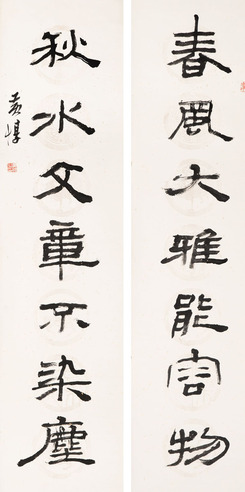 春風大雅能容物
秋水文章不染塵
黃惇